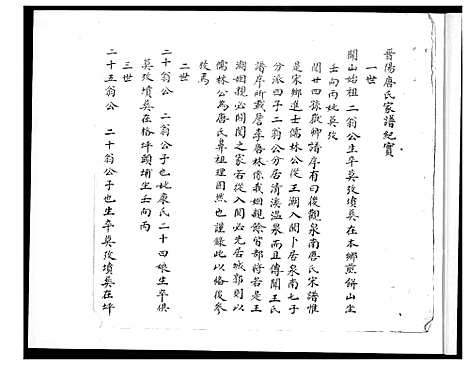 晋陽唐氏家譜紀實
一世
開山始祖二翁公生卒莫攷墳葬在本鄉煎餅山坐
壬向丙妣莫攷
閩廿四孫敦鄉譜序有曰後觀泉南唐氏宋譜惟
是宋鄉進士儒林公從王潮入閩卜居泉南七子
分派四子二翁公分居清溪温泉而且傳聞王氏
譜序所載唐李魯林係我姻親餘皆部將若是王
潮姻親必開閩之家若從入閩必先居城郭則以
儒林公為唐氏鼻祖理固然也謹錄此以俻後參
攷焉
二世
二十翁公 二翁公子也妣康氏二十四娘生卒俱
莫攷墳葬在格坪頭埔坐壬向丙
三世
二十五翁公 二十翁公子也生卒莫攷墳葬在坪